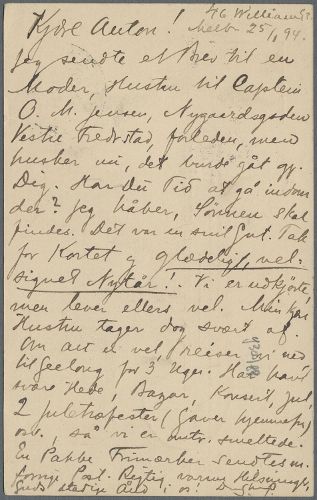 46 William St.
Melb. 25/1 94.
Kjære Anton!
Jeg sendte et Brev til en
Moder, Hustru til Captein
O. M. Jensen, Nygaardsgaden
Vestre Fredrstad, forleden, men
husker nu, det burde gåt gj.
Dig. Har Du Tid at gå indom
der? Jeg håber, Sønnen skal
findes. Det var en snil Gut. Tak
for Kortet og glædeligt, vel-
signet Nytår! Vi er udkjørte
men lever ellers vel. Min kjære
Hustru tager dog svært af.
Om alt er vel reiser vi ned
til Geelong for 3 Uger. Har havt
svære Hede, Bazar, Konsert, Jul,
2 juletræfester (Gaver hjemmefra)
osv., så vi er næsten smeltede.
En Pakke Frimærker sendtes m.
forrige Post. Rigtig varme Hilsninger
Guds